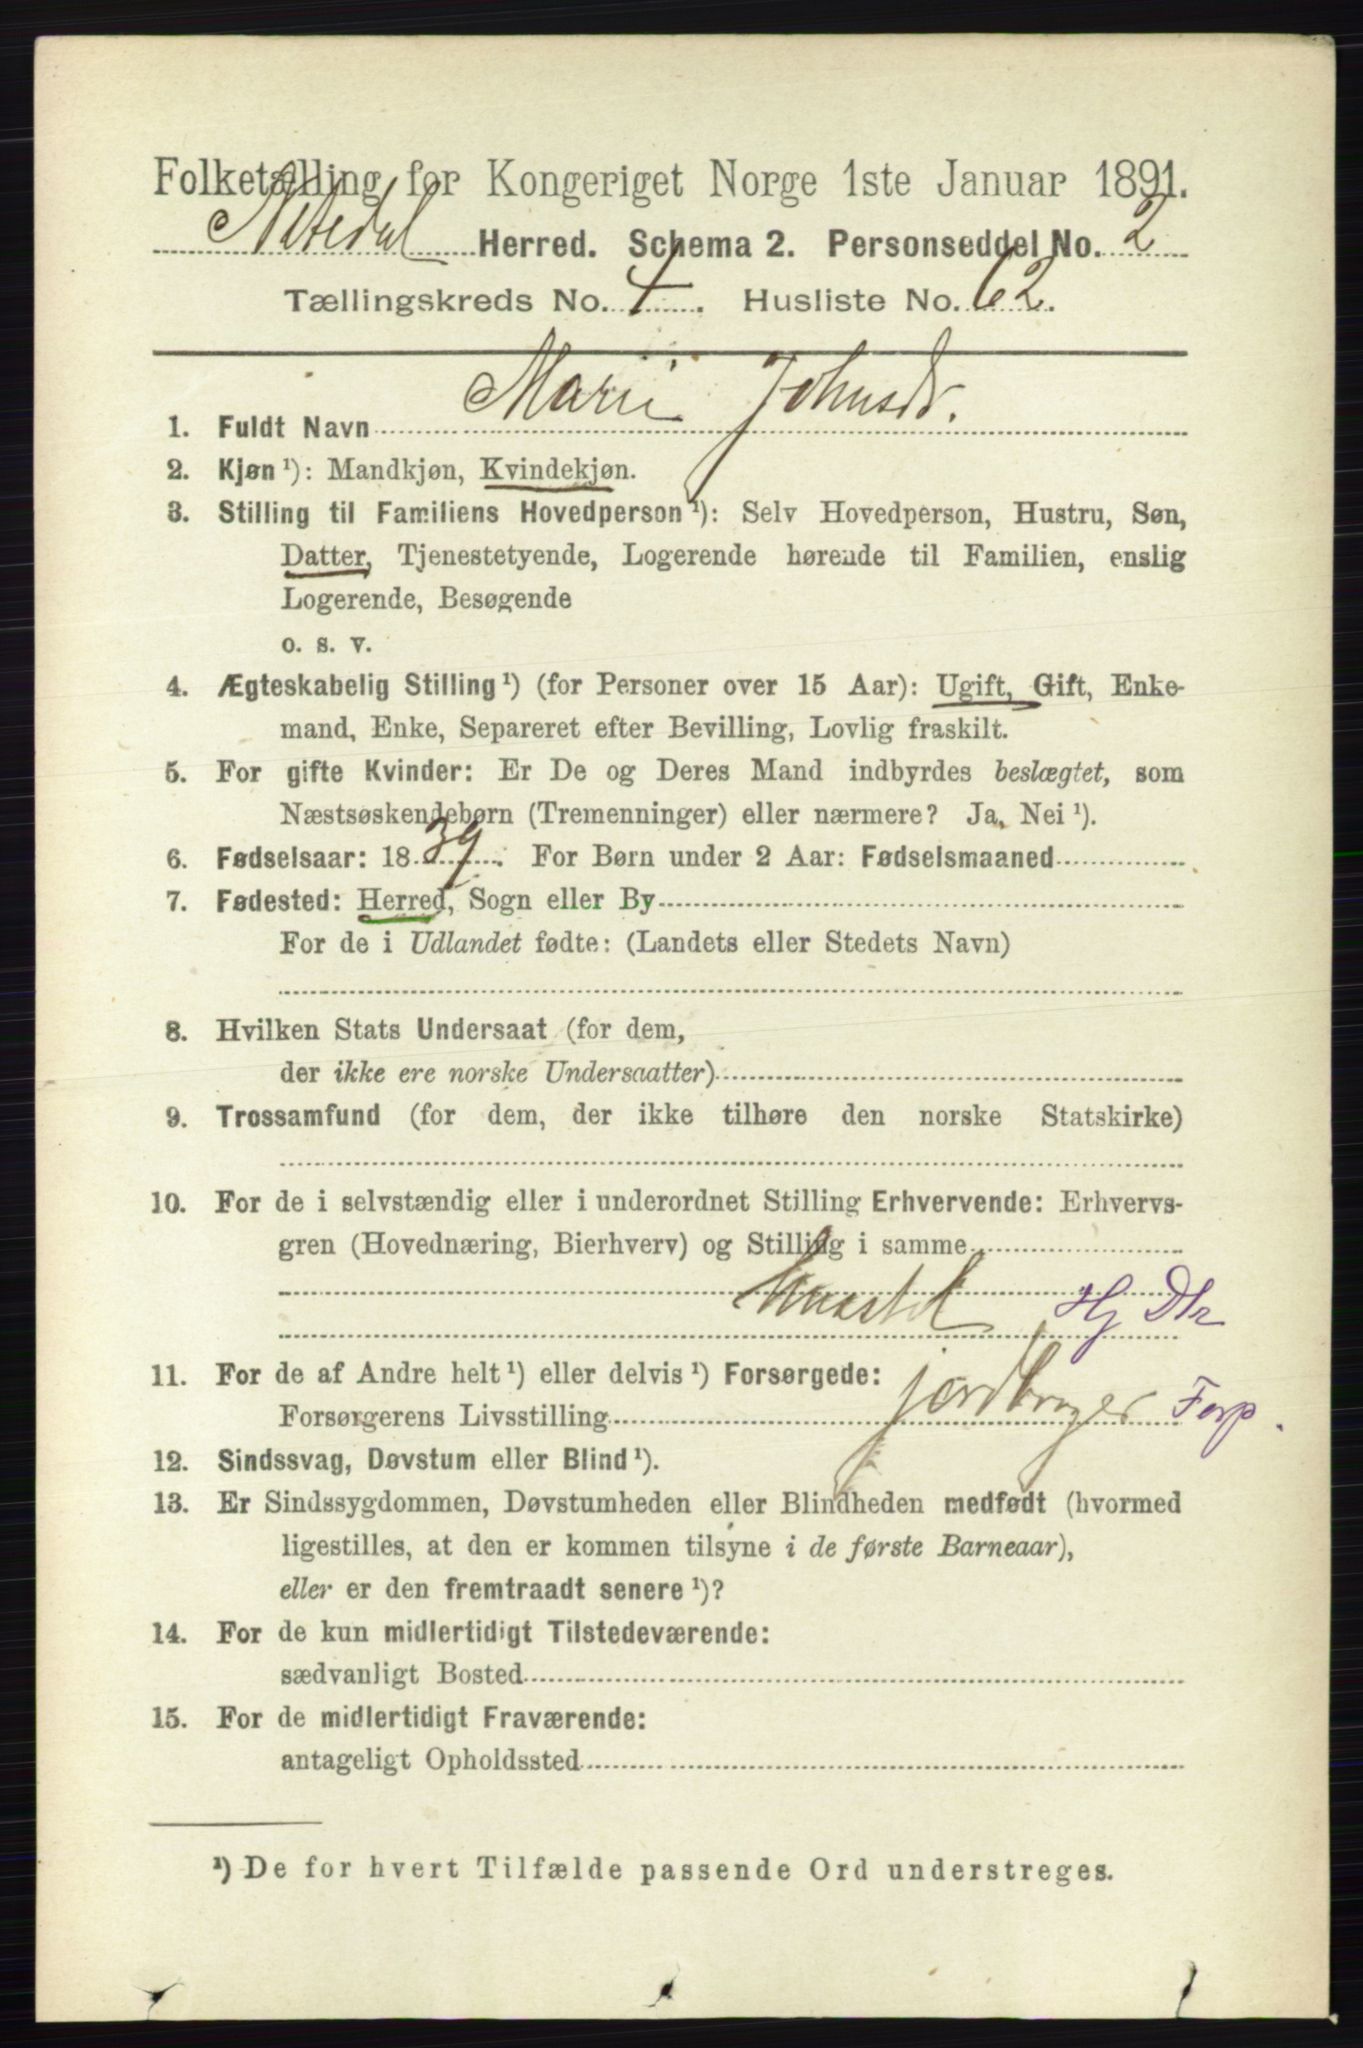 Folketælling for Kongeriget Norge 1ste Januar 1891.
Nitedal Herred. Schema 2. Personseddel No. 2
Tællingskreds No. 4. Husliste No. 62.
1. Fuldt Navn Marie Johnsdr.
2. Kjøn ¹): Mandkjøn, Kvindekjøn.
3. Stilling til Familiens Hovedperson ¹): Selv Hovedperson, Hustru, Søn,
Datter, Tjenestetyende, Logerende hørende til Familien, enslig
Logerende, Besøgende
o. s. v.
4. Ægteskabelig Stilling ¹) (for Personer over 15 Aar): Ugift, Gift, Enke-
mand, Enke, Separeret efter Bevilling, Lovlig fraskilt.
5. For gifte Kvinder: Er De og Deres Mand indbyrdes beslægtet, som
Næstsøskendebørn (Tremenninger) eller nærmere? Ja, Nei ¹).
6. Fødselsaar: 1839. For Børn under 2 Aar: Fødselsmaaned
7. Fødested: Herred, Sogn eller By
For de i Udlandet fødte: (Landets eller Stedets Navn)
8. Hvilken Stats Undersaat (for dem,
der ikke ere norske Undersaatter)
9. Trossamfund (for dem, der ikke tilhøre den norske Statskirke)
10. For de i selvstændig eller i underordnet Stilling Erhvervende: Erhvervs-
gren (Hovednæring, Bierhverv) og Stilling i samme
Hj Dtr
11. For de af Andre helt ¹) eller delvis ¹) Forsørgede:
Forsørgerens Livsstilling jordbruger Forp.
12. Sindssvag, Døvstum eller Blind ¹).
13. Er Sindssygdommen, Døvstumheden eller Blindheden medfødt (hvormed
ligestilles, at den er kommen tilsyne i de første Barneaar),
eller er den fremtraadt senere ¹)?
14. For de kun midlertidigt Tilstedeværende:
sædvanligt Bosted
15. For de midlertidigt Fraværende:
antageligt Opholdssted
¹) De for hvert Tilfælde passende Ord understreges.